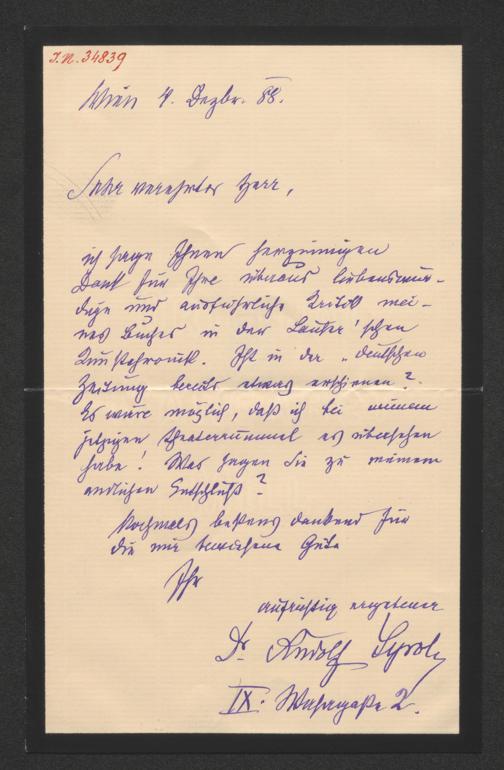 I.N. 34839
Wien 4. Dezbr. 88.
Sehr verehrter Herr,
ich sage Ihnen herzinnigen
Dank für Ihre überaus liebenswür-
dige und ausführliche Kritik mei-
nes Buches in der Lauser'schen
Kunstchronik. Ist in der „deutschen
Zeitung bereits etwas erschienen?
Es wäre möglich, daß ich bei meinem
jetzigen Theaterrummel es übersehen
habe! Was sagen Sie zu meinem
endlichen Entschluß?
Nochmals bestens dankend für
die mir bewiesene Güte
Ihr
aufrichtig ergebener
Dr. Rudolf
IX. Wasagaße 2.